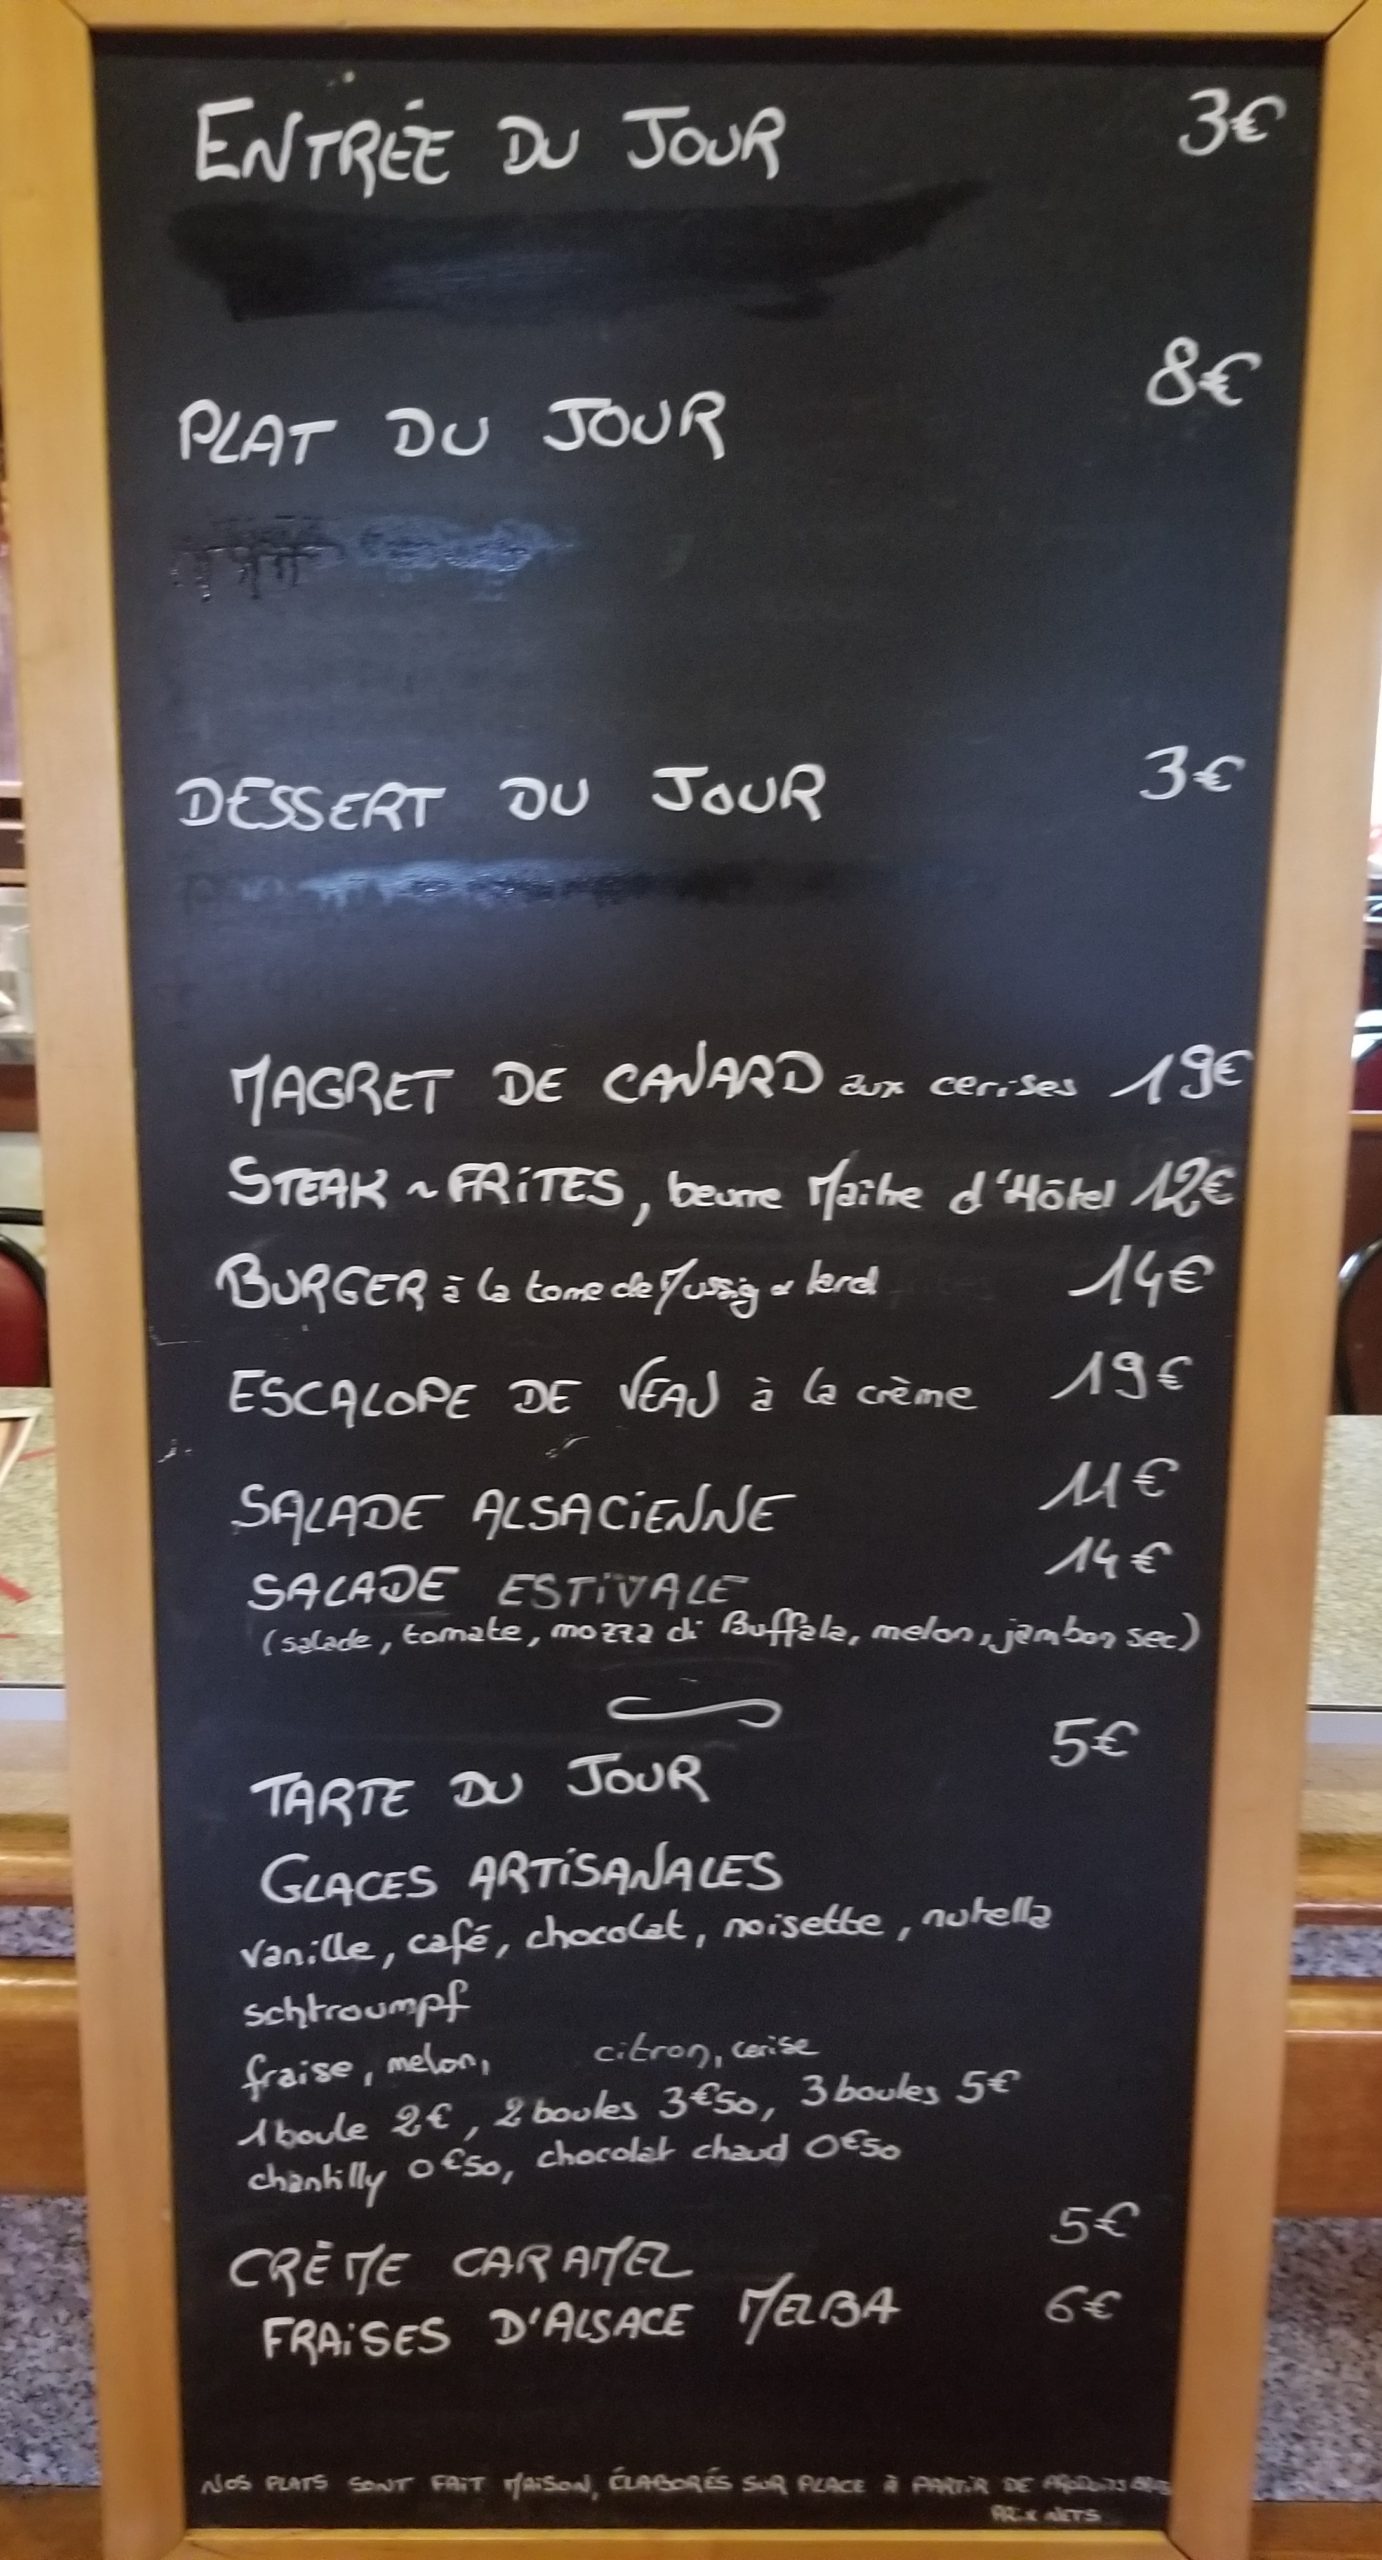 ENTRÉE DU JOUR 3€
PLAT DU JOUR 8€
DESSERT DU JOUR 3€
MAGRET DE CANARD aux cerises 19€
STEAK ~ FRITES, beurre Maître d'Hôtel 12€
BURGER à la tome de Mussig & lard 14€
ESCALOPE DE VEAU à la crème 19€
SALADE ALSACIENNE 11€
SALADE ESTIVALE 14€
(salade, tomate, mozza di Buffala, melon, jambon sec)
TARTE DU JOUR 5€
GLACES ARTISANALES
vanille, café, chocolat, noisette, nutella
schtroumpf
fraise, melon, citron, cerise
1 boule 2€, 2 boules 3€50, 3 boules 5€
chantilly 0€50, chocolat chaud 0€50
CRÈME CARAMEL 5€
FRAISES D'ALSACE MELBA 6€
NOS PLATS SONT FAIT MAISON, ÉLABORÉS SUR PLACE À PARTIR DE PRODUITS
PRIX NETS